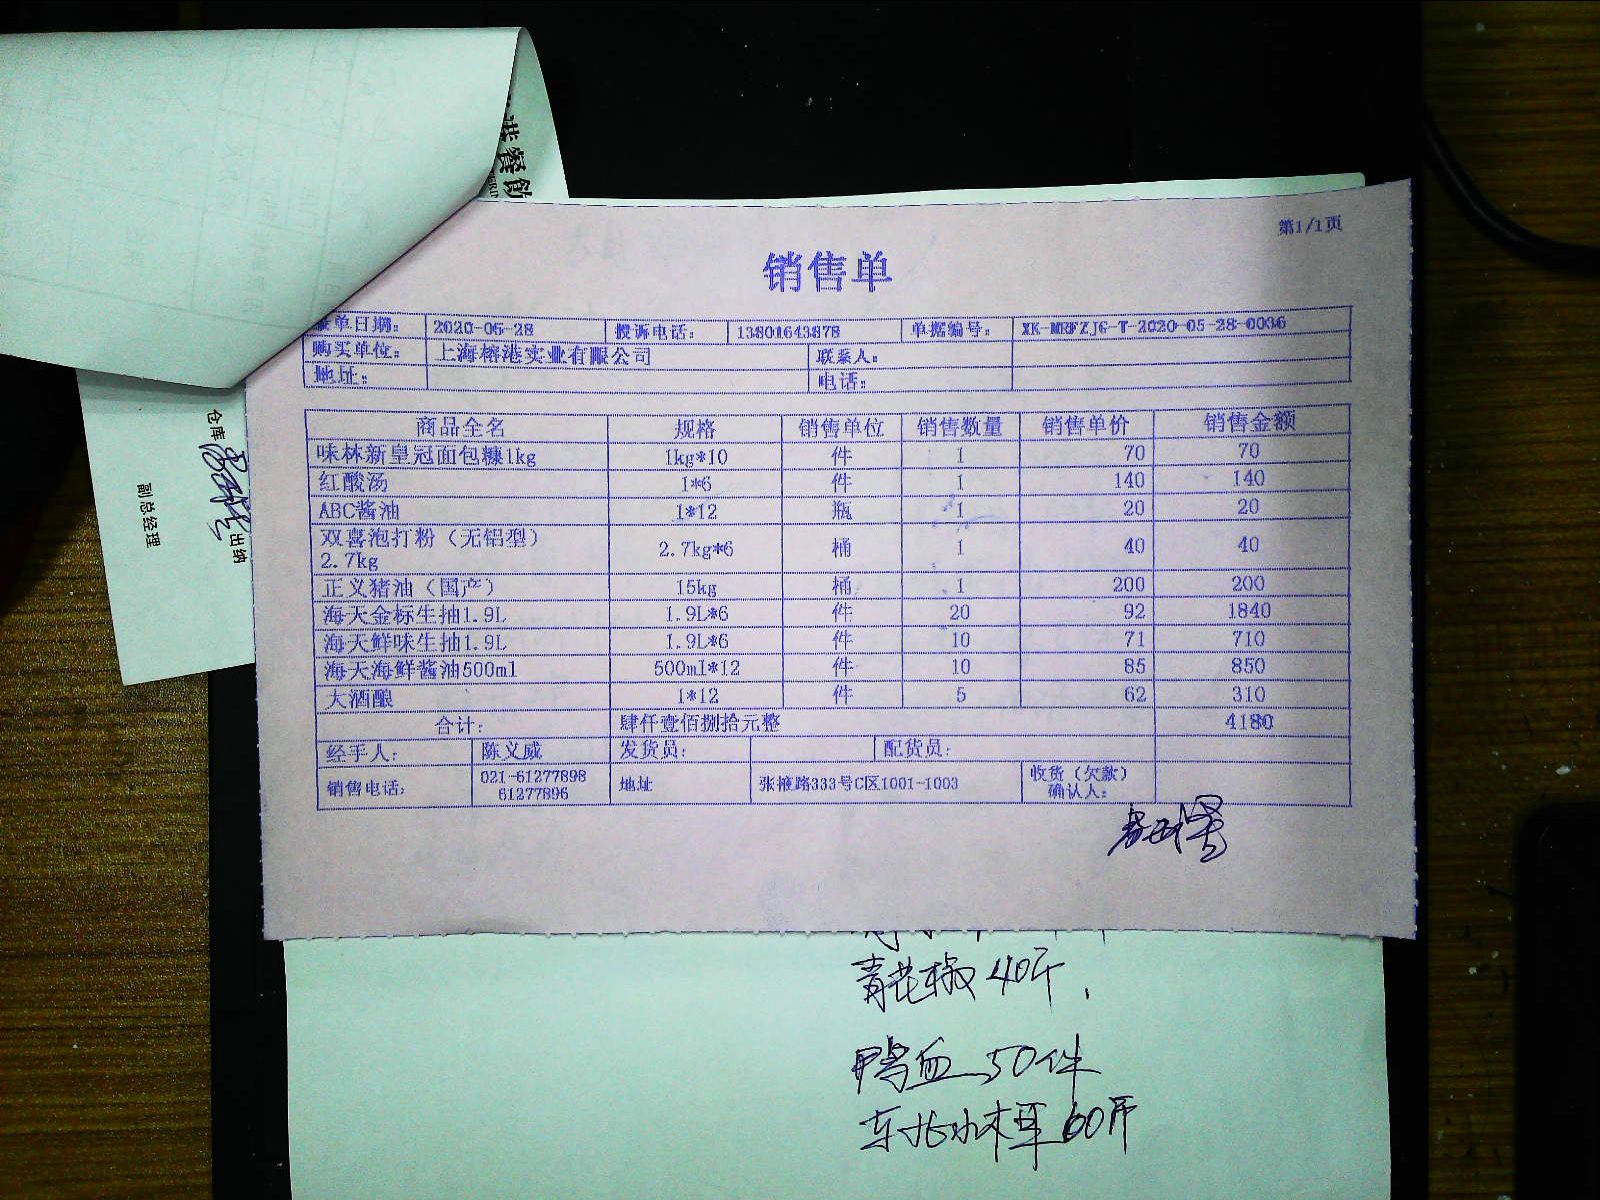 港餐饮
第1/1页
销售单
录单日期: 2020-05-28 投诉电话: 13801643878 单据编号: XK-MRFZJG-T-2020-05-28-0036
购买单位: 上海榕港实业有限公司 联系人:
地址: 电话:
商品全名 规格 销售单位 销售数量 销售单价 销售金额
味林新皇冠面包糠1kg 1kg*10 件 1 70 70
红酸汤 1*6 件 1 140 140
ABC酱油 1*12 瓶 1 20 20
双喜泡打粉（无铝型）
2.7kg 2.7kg*6 桶 1 40 40
正义猪油（国产） 15kg 桶 1 200 200
海天金标生抽1.9L 1.9L*6 件 20 92 1840
海天鲜味生抽1.9L 1.9L*6 件 10 71 710
海天海鲜酱油500ml 500ml*12 件 10 85 850
大酒酿 1*12 件 5 62 310
合计: 肆仟壹佰捌拾元整 4180
经手人: 陈义威 发货员: 配货员:
销售电话: 021-61277898 61277896 地址 张掖路333号C区1001-1003 收货（欠款）确认人:
仓库
出纳
副总经理
青花椒 40斤
鸭血 50件
东北小木耳 60斤